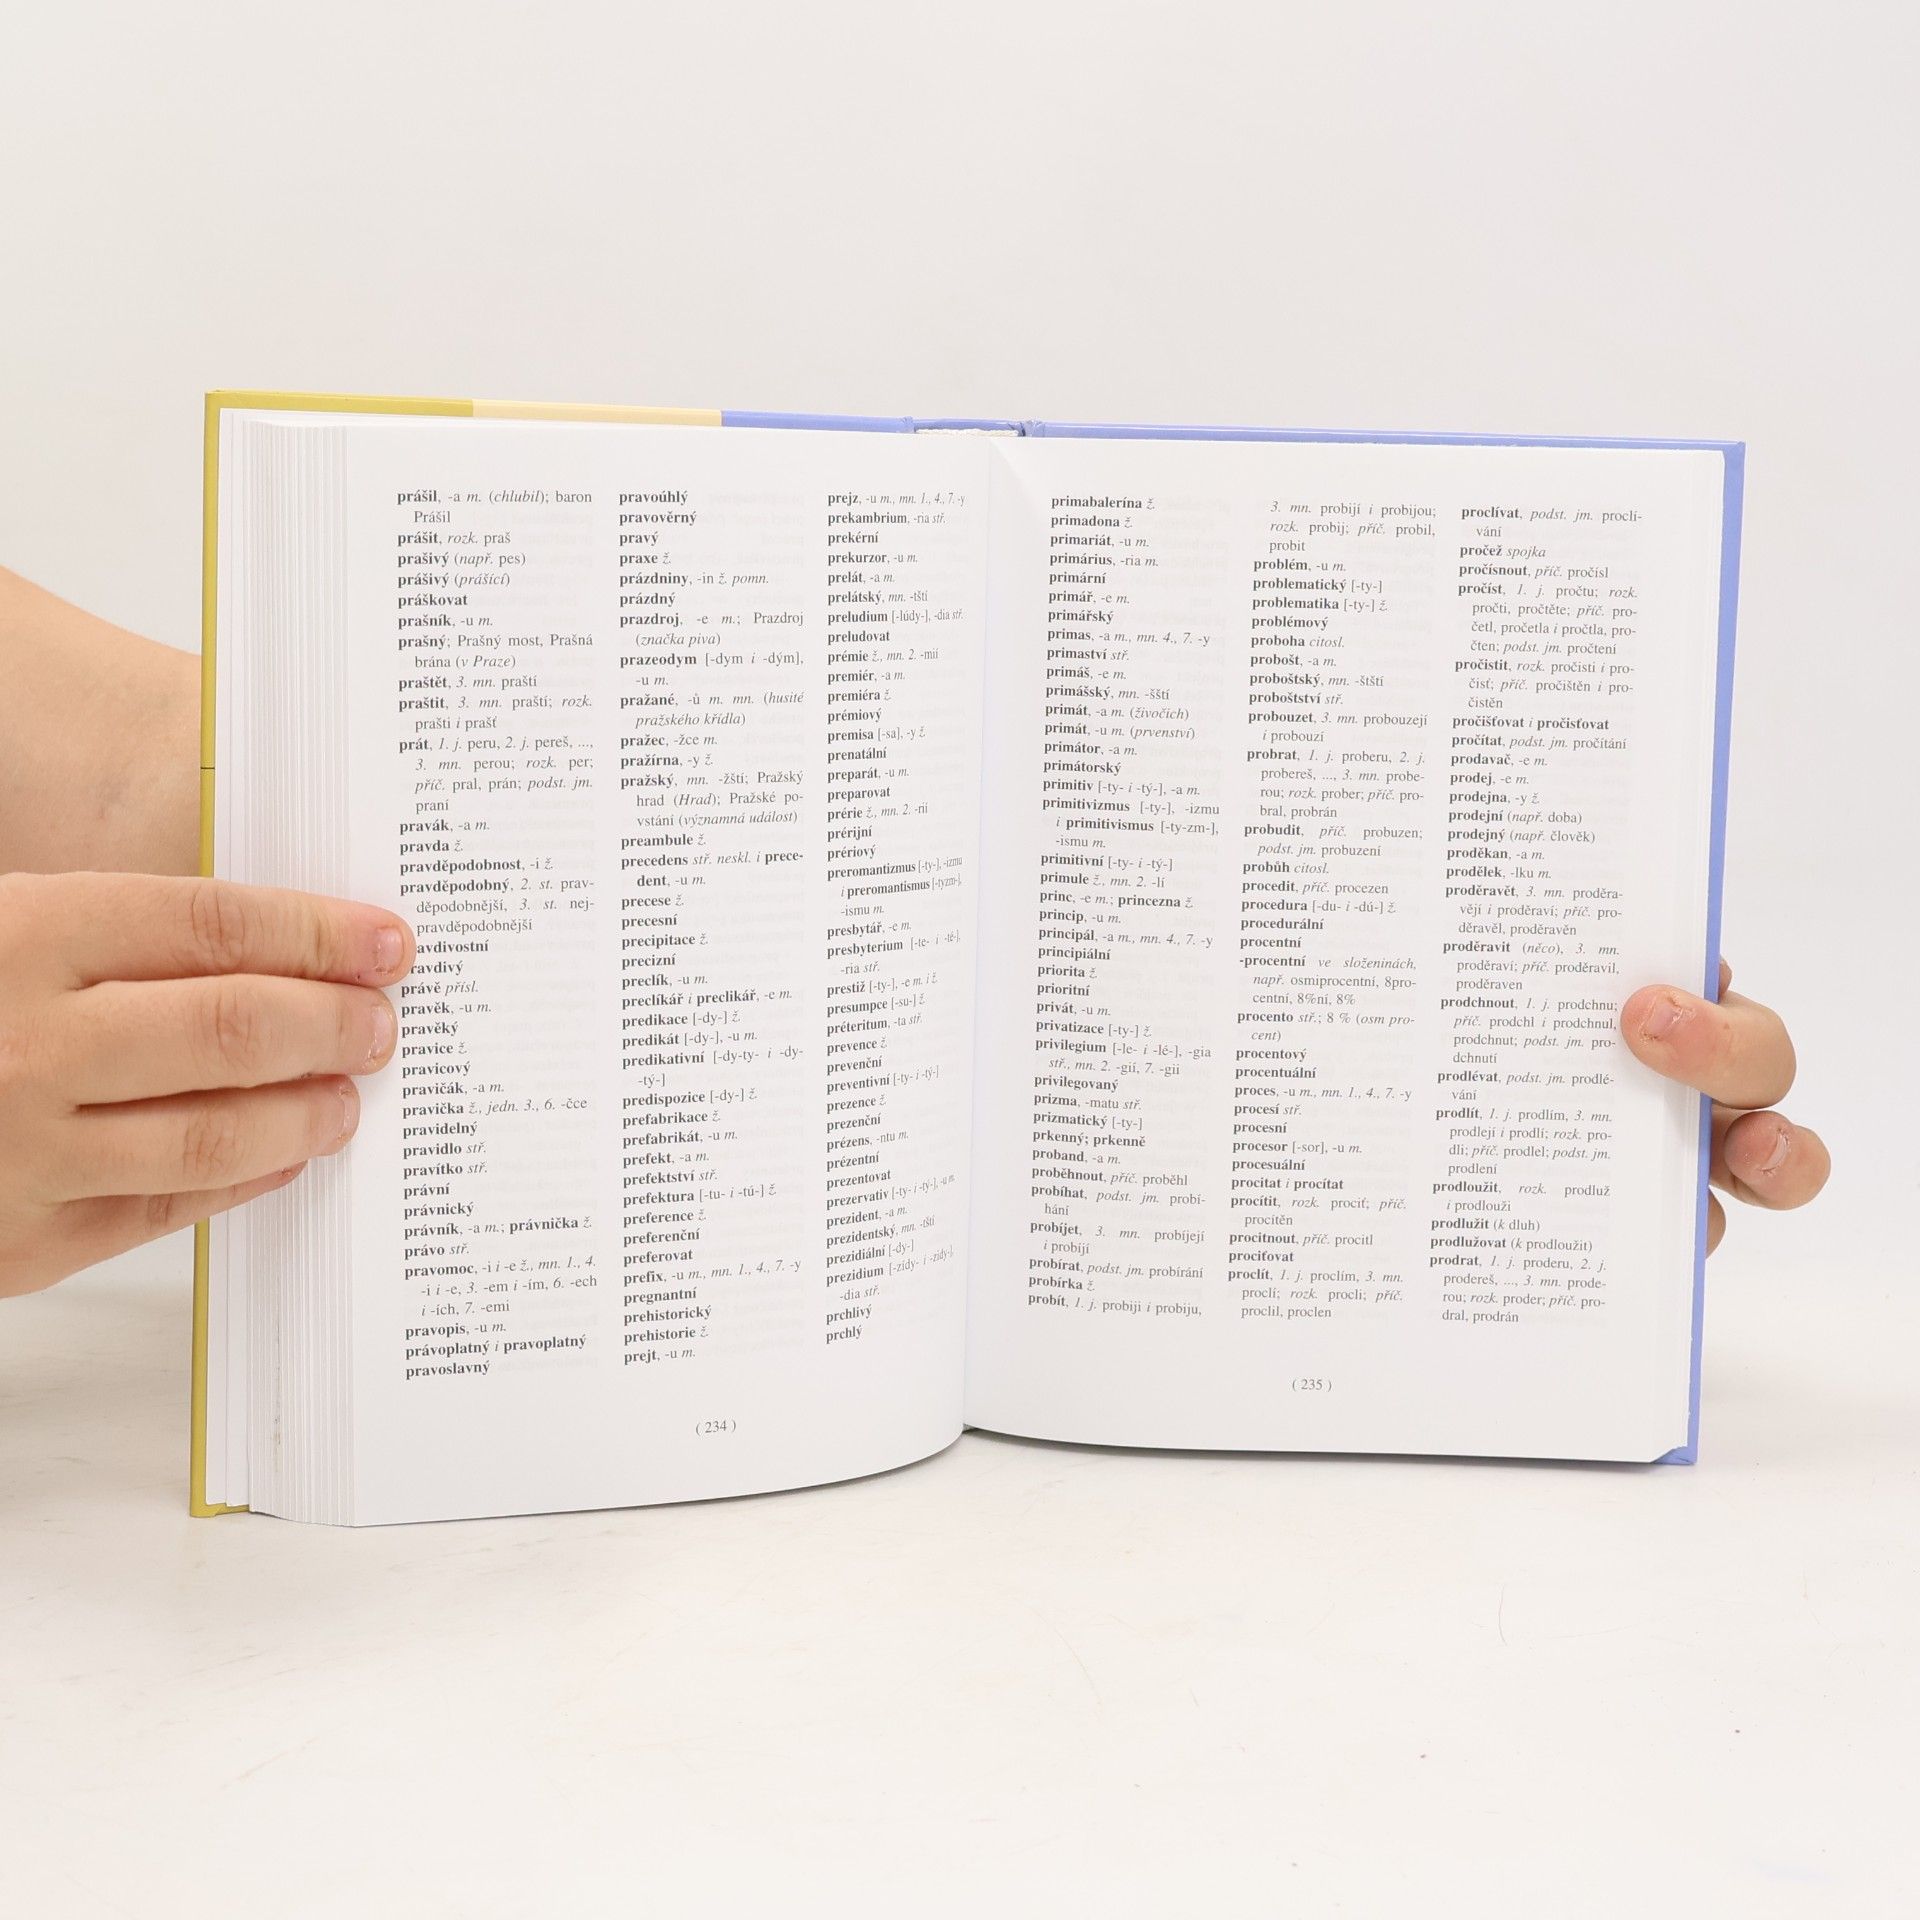 prášil, -a m. (chlubil); baron
Prášil
prášit, rozk. praš
prašivý (např. pes)
prášivý (prášící)
práškovat
prašník, -u m.
prašný; Prašný most, Prašná
brána (v Praze)
praštět, 3. mn. praští
praštit, 3. mn. praští; rozk.
prašti i prašť
prát, 1. j. peru, 2. j. pereš, ...,
3. mn. perou; rozk. per;
příč. pral, prán; podst. jm.
praní
pravák, -a m.
pravda ž.
pravděpodobnost, -i ž.
pravděpodobný, 2. st. prav-
děpodobnější, 3. st. nej-
pravděpodobnější
avdivostní
ravdivý
právě přísl.
pravěk, -u m.
pravěký
pravice ž.
pravicový
pravičák, -a m.
pravička ž., jedn. 3., 6. -čce
pravidelný
pravidlo stř.
pravítko stř.
právní
právnický
právník, -a m.; právnička ž.
právo stř.
pravomoc, -i i -e ž., mn. 1., 4.
-i i -e, 3. -em i -ím, 6. -ech
i -ích, 7. -emi
pravopis, -u m.
právoplatný i pravoplatný
pravoslavný
pravoúhlý
pravověrný
pravý
praxe ž.
prázdniny, -in ž. pomn.
prázdný
prazdroj, -e m.; Prazdroj
(značka piva)
prazeodym [-dym i -dým],
-u m.
pražané, -ů m. mn. (husité
pražského křídla)
pražec, -žce m.
pražírna, -y ž.
pražský, mn. -žští; Pražský
hrad (Hrad); Pražské po-
vstání (významná událost)
preambule ž.
precedens stř. neskl. i prece-
dent, -u m.
precese ž.
precesní
precipitace ž.
precizní
preclík, -u m.
preclíkář i preclikář, -e m.
predikace [-dy-] ž.
predikát [-dy-], -u m.
predikativní [-dy-ty- i -dy-
-tý-]
predispozice [-dy-] ž.
prefabrikace ž.
prefabrikát, -u m.
prefekt, -a m.
prefektství stř.
prefektura [-tu- i -tú-] ž.
preference ž.
preferenční
preferovat
prefix, -u m., mn. 1., 4., 7. -y
pregnantní
prehistorický
prehistorie ž.
prejt, -u m.
prejz, -u m., mn. 1., 4., 7. -y
prekambrium, -ria stř.
prekérní
prekurzor, -u m.
prelát, -a m.
prelátský, mn. -tští
preludium [-lúdy-], -dia stř.
preludovat
prémie ž., mn. 2. -mií
premiér, -a m.
premiéra ž.
prémiový
premisa [-sa], -y ž.
prenatální
preparát, -u m.
preparovat
prérie ž., mn. 2. -rií
prérijní
prériový
preromantizmus [-ty-], -izmu
i preromantismus [-tyzm-],
-ismu m.
presbytář, -e m.
presbyterium [-te- i -té-],
-ria stř.
prestiž [-ty-], -e m. i ž.
presumpce [-su-] ž.
préteritum, -ta stř.
prevence ž.
prevenční
preventivní [-ty- i -tý-]
prezence ž.
prezenční
prézens, -ntu m.
prézentní
prezentovat
prezervativ [-ty- i -tý-], -u m.
prezident, -a m.
prezidentský, mn. -tští
prezidiální [-dy-]
prezidium [-zidy- i -zídy-],
-dia stř.
prchlivý
prchlý
( 234 )
primabalerína ž.
primadona ž.
primariát, -u m.
primárius, -ria m.
primární
primář, -e m.
primářský
primas, -a m., mn. 4., 7. -y
primaství stř.
primáš, -e m.
primášský, mn. -šští
primát, -a m. (živočich)
primát, -u m. (prvenství)
primátor, -a m.
primátorský
primitiv [-ty- i -tý-], -a m.
primitivizmus [-ty-], -izmu
i primitivismus [-ty-zm-],
-ismu m.
primitivní [-ty- i -tý-]
primule ž., mn. 2. -lí
princ, -e m.; princezna ž.
princip, -u m.
principál, -a m., mn. 4., 7. -y
principiální
priorita ž.
prioritní
privát, -u m.
privatizace [-ty-] ž.
privilegium [-le- i -lé-], -gia
stř., mn. 2. -gií, 7. -gii
privilegovaný
prizma, -matu stř.
prizmatický [-ty-]
prkenný; prkenně
proband, -a m.
proběhnout, příč. proběhl
probíhat, podst. jm. probí-
hání
probíjet, 3. mn. probíjejí
i probíjí
probírat, podst. jm. probírání
probírka ž.
probít, 1. j. probiji i probiju,
3. mn. probijí i probijou;
rozk. probij; příč. probil,
probit
problém, -u m.
problematický [-ty-]
problematika [-ty-] ž.
problémový
proboha citosl.
probošt, -a m.
proboštský, mn. -štští
proboštství stř.
probouzet, 3. mn. probouzejí
i probouzí
probrat, 1. j. proberu, 2. j.
probereš, ..., 3. mn. probe-
rou; rozk. prober; příč. pro-
bral, probrán
probudit, příč. probuzen;
podst. jm. probuzení
probůh citosl.
procedit, příč. procezen
procedura [-du- i -dú-] ž.
procedurální
procentní
-procentní ve složeninách,
např. osmiprocentní, 8pro-
centní, 8%ní, 8%
procento stř.; 8 % (osm pro-
cent)
procentový
procentuální
proces, -u m., mn. 1., 4., 7. -y
procesí stř.
procesní
procesor [-sor], -u m.
procesuální
procitat i procítat
procítit, rozk. prociť; příč.
procítěn
procitnout, příč. procitl
prociťovat
proclít, 1. j. proclím, 3. mn.
proclí; rozk. procli; příč.
proclil, proclen
proclívat, podst. jm. proclí-
vání
pročež spojka
pročísnout, příč. pročísl
pročíst, 1. j. pročtu; rozk.
pročti, pročtěte; příč. pro-
četl, pročetla i pročtla, pro-
čten; podst. jm. pročtení
pročistit, rozk. pročisti i pro-
čisť; příč. pročištěn i pro-
čistěn
pročišťovat i pročisťovat
pročítat, podst. jm. pročítání
prodavač, -e m.
prodej, -e m.
prodejna, -y ž.
prodejní (např. doba)
prodejný (např. člověk)
proděkan, -a m.
prodělek, -lku m.
proděravět, 3. mn. proděra-
vějí i proděraví; příč. pro-
děravěl, proděravěn
proděravit (něco), 3. mn.
proděraví; příč. proděravil,
proděraven
prodchnout, 1. j. prodchnu;
příč. prodchl i prodchnul,
prodchnut; podst. jm. pro-
dchnutí
prodlévat, podst. jm. prodlé-
vání
prodlít, 1. j. prodlím, 3. mn.
prodlejí i prodlí; rozk. pro-
dli; příč. prodlel; podst. jm.
prodlení
prodloužit, rozk. prodluž
i prodlouži
prodlužit (k dluh)
prodlužovat (k prodloužit)
prodrat, 1. j. proderu, 2. j.
prodereš, ..., 3. mn. prode-
rou; rozk. proder; příč. pro-
dral, prodrán
( 235 )